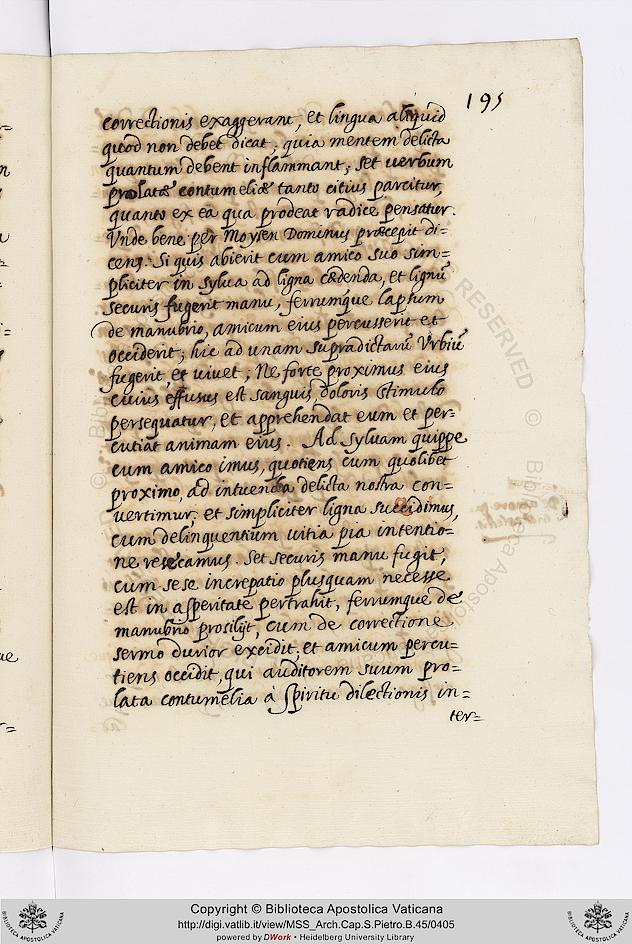 195
correctionis exaggerant, et lingua aliquid
quod non debet dicat; quia mentem delicta
quantum debent inflammant; set uerbum
prolatæ contumeliæ tanto citius parcitur,
quanto ex ea qua prodeat radice pensatur.
Vnde bene per Moysen Dominus præcepit di=
cens: Si quis abierit cum amico suo sim=
pliciter in sylua ad ligna cædenda, et lignũ
securis fugerit manu, ferrumque lapsum
de manubrio, amicum eius percusserit et
occiderit; hic ad unam supradictarũ Vrbiũ
fugerit, et uiuet; Ne forte proximus eius
cuius effusus est sanguis, doloris stimulo
persequatur, et apprehendat eum et per=
cutiat animam eius. Ad syluam quippe
cum amico imus, quotiens cum quolibet
proximo, ad intuenda delicta nostra con=
uertimur; et simpliciter ligna succidimus,
cum delinquentium uitia pia intentio=
ne resecamus. Set securis manu fugit,
cum sese increpatio plusquam necesse
est in asperitate pertrahit, ferrumque de
manubrio prosilijt, cum de correctione
sermo durior excidit; et amicum percu=
tiens occidit, qui auditorem suum pro=
lata contumelia à spiritu dilectionis in=
ter=
RESERVED ©
Biblioteca Aposto
Copyright © Biblioteca Apostolica Vaticana
http://digi.vatlib.it/view/MSS_Arch.Cap.S.Pietro.B.45/0405
powered by DWork • Heidelberg University Library